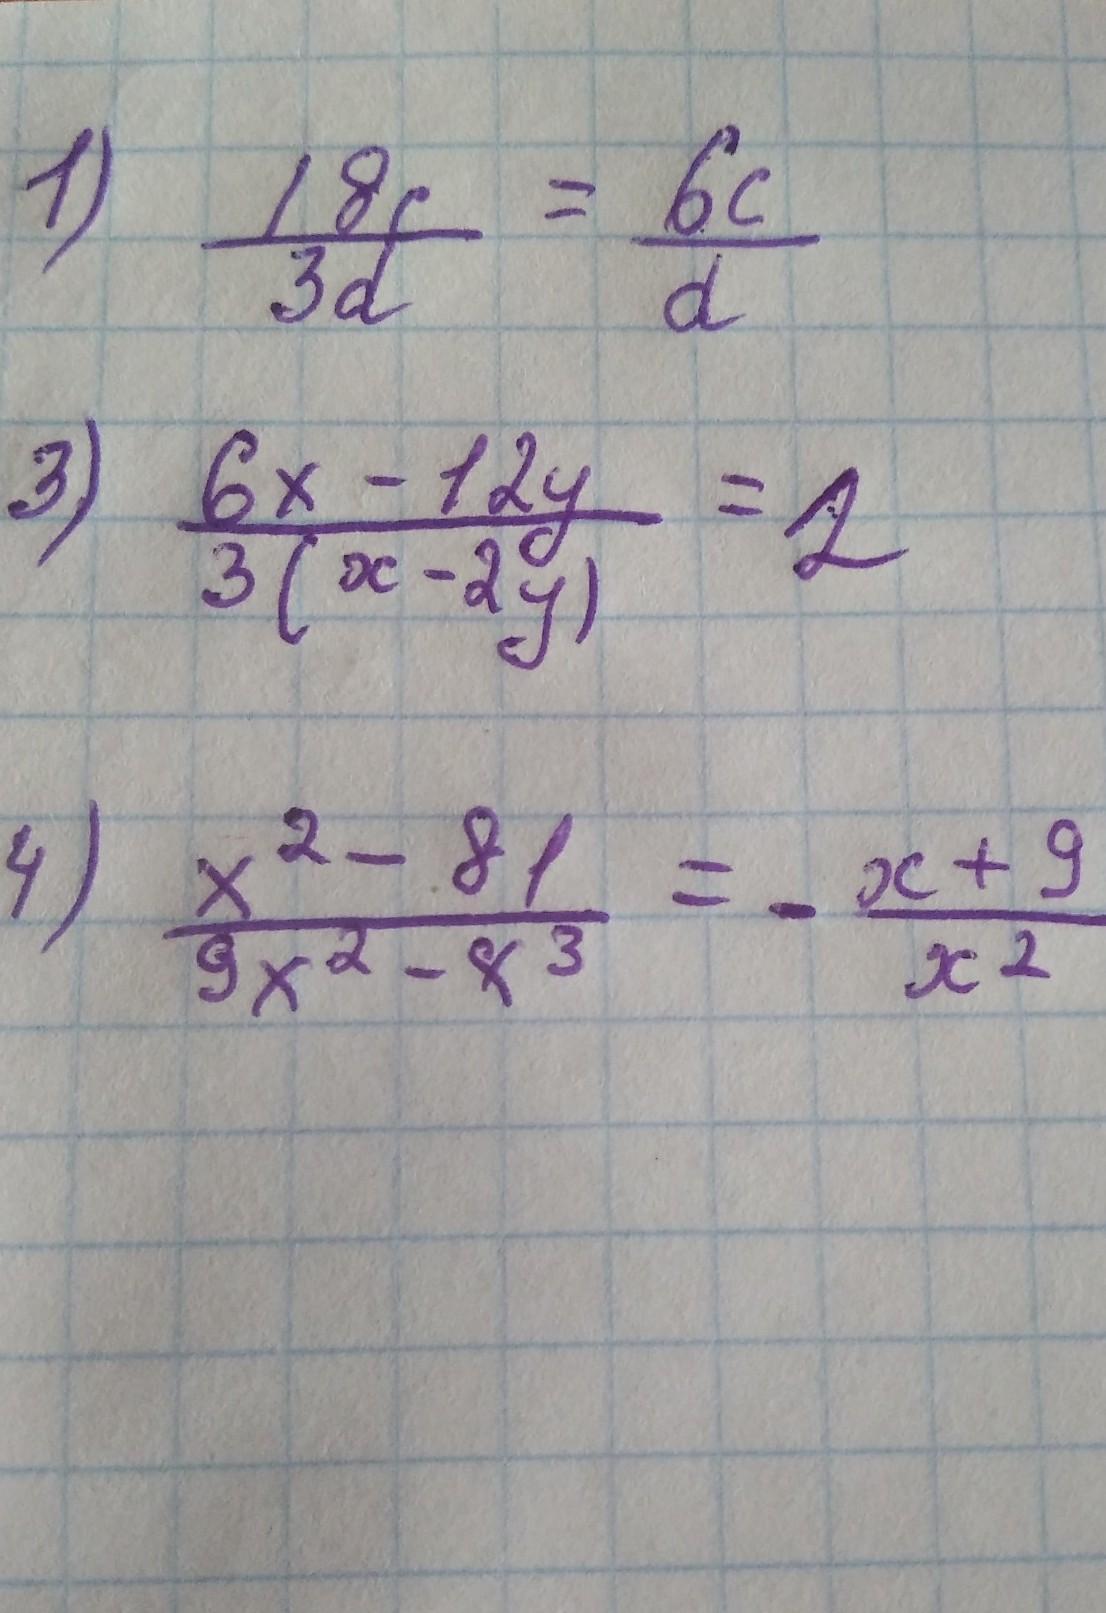 1) 18c/3d = 6c/d
3) 6x - 12y/3(x - 2y) = 2
4) x² - 81/9x² - x³ = - x + 9/x²